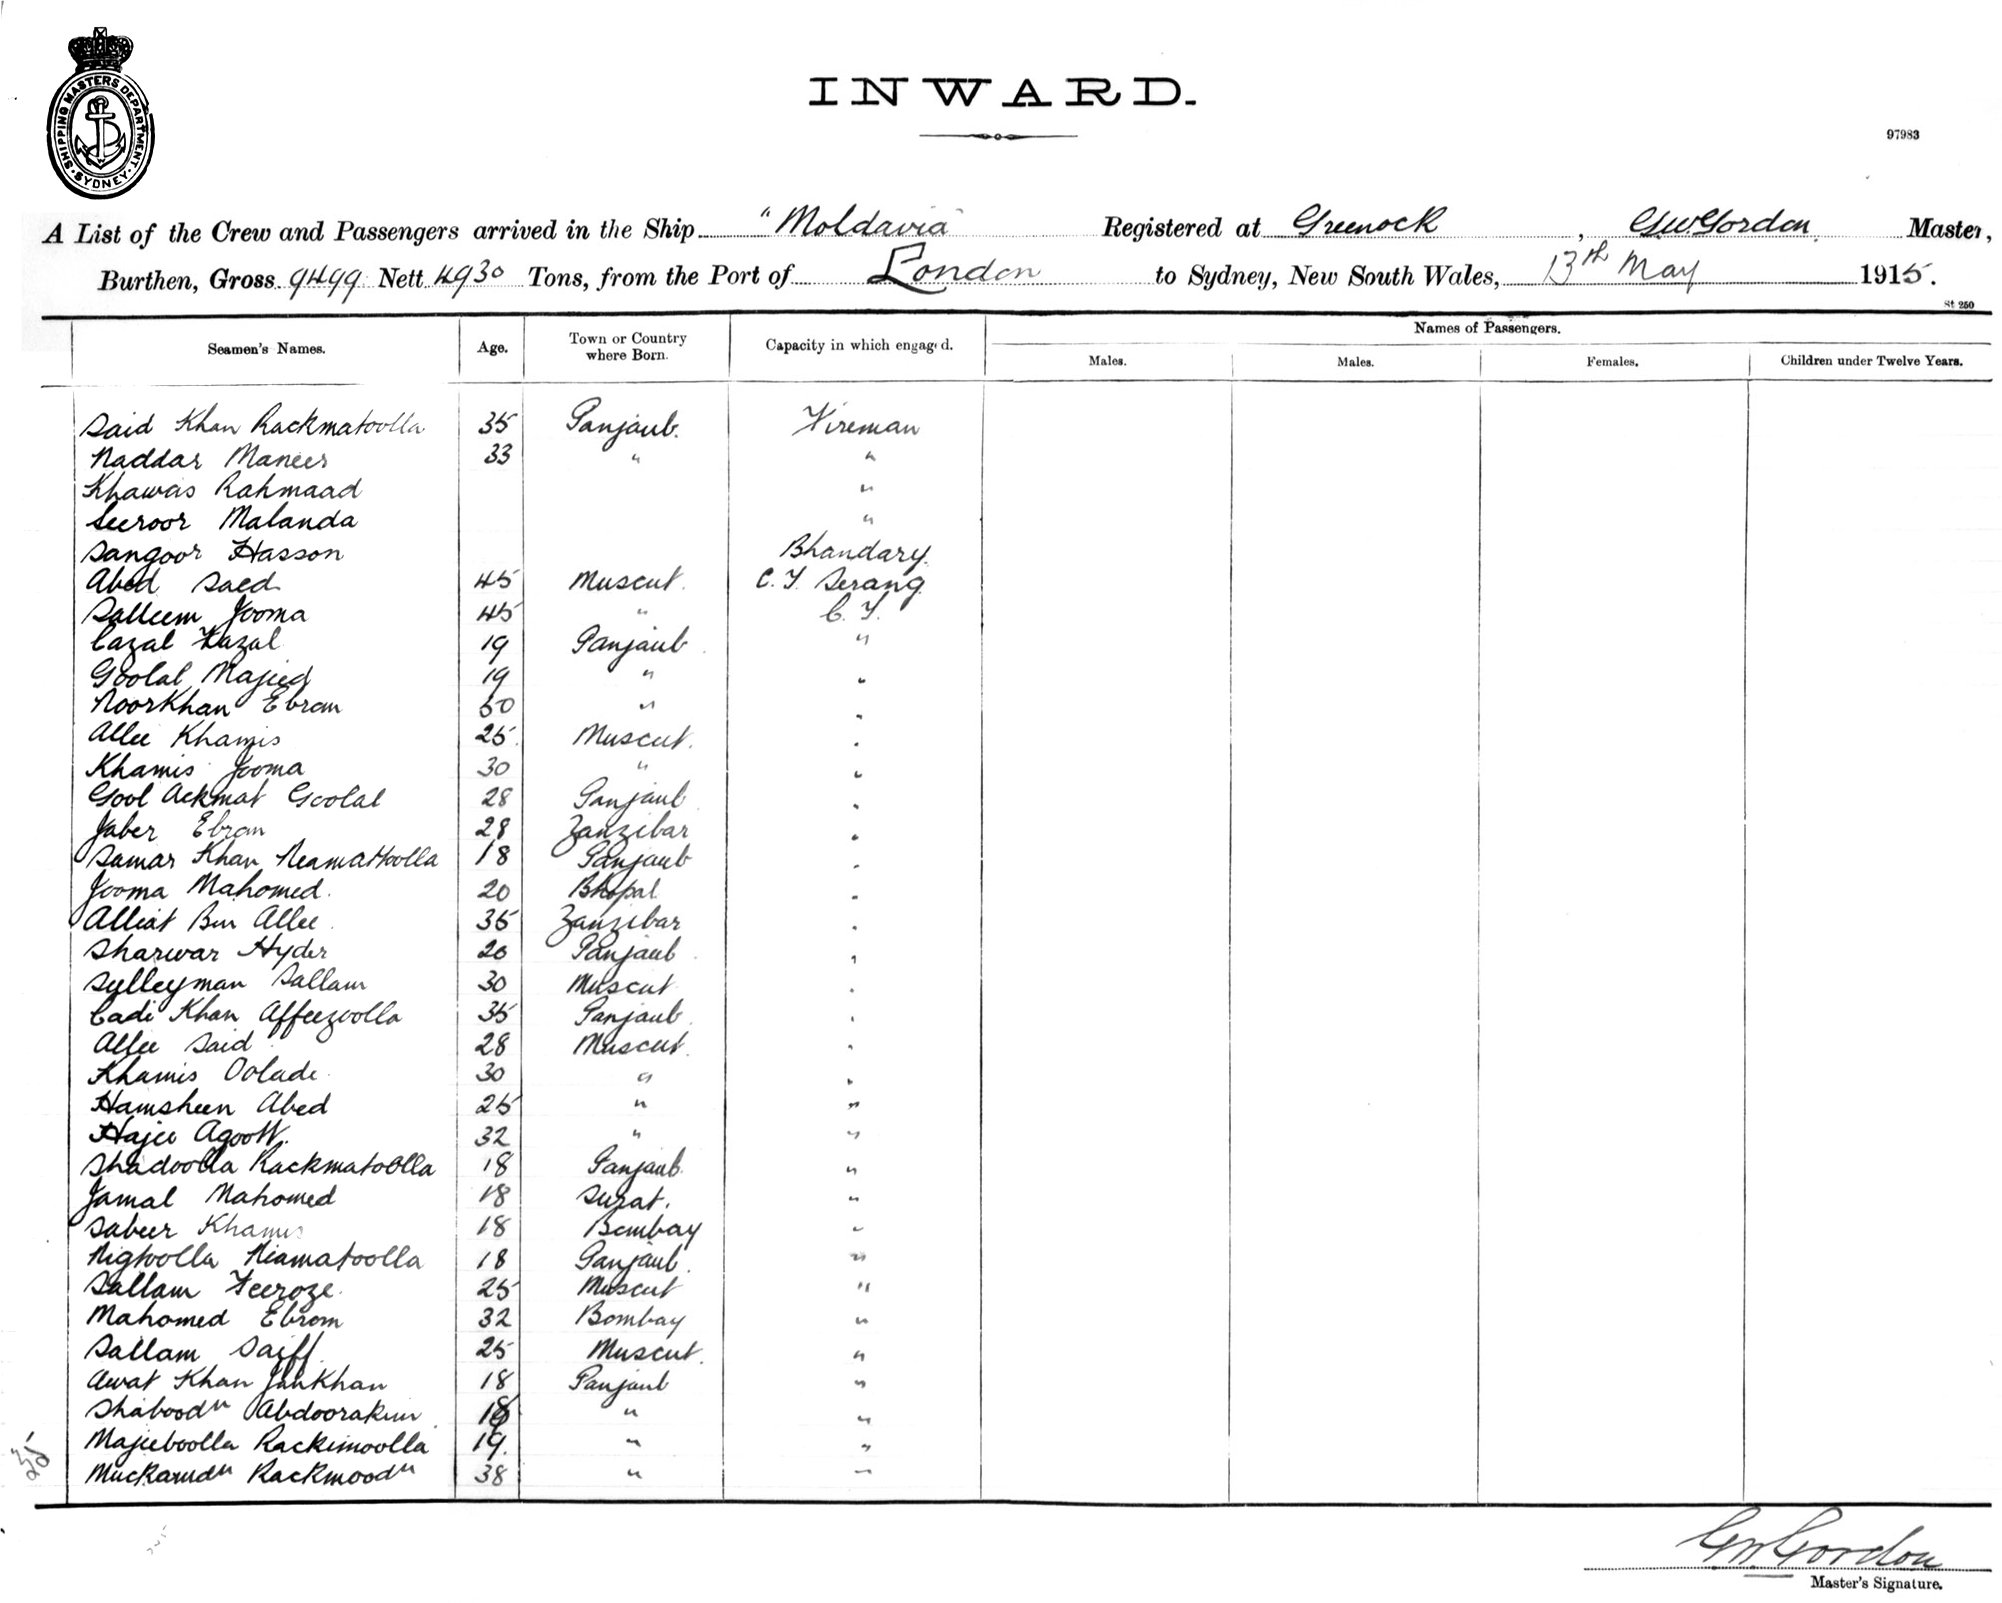 SHIPPING MASTERS DEPARTMENT
SYDNEY
INWARD.
97983
A List of the Crew and Passengers arrived in the Ship "Moldavia" Registered at Greenock, G.W. Gordon, Master,
Burthen, Gross 9499 Nett 4930 Tons, from the Port of London to Sydney, New South Wales, 13th May 1915.
St 250
Seamen's Names. Age. Town or Country where Born. Capacity in which engaged. Names of Passengers.
Males. Males. Females. Children under Twelve Years.
Said Khan Rackmatoolla 35 Panjaub. Fireman
Naddar Maneer 33 " "
Khawas Rahmaad "
Seeroor Malanda "
Sangoor Hasson Bhandary.
Abed Saed 45 Muscut. C. T. Serang
Salleem Jooma 45 " C. T.
Cazal Fazal 19 Panjaub "
Goolal Majeed 19 " "
Noorkhan Ebram 50 " "
Allee Khamis 25 Muscut. "
Khamis Jooma 30 " "
Gool Ackmat Goolal 28 Panjaub "
Jaber Ebram 28 Zanzibar "
Samar Khan Neamattoolla 18 Panjaub "
Jooma Mahomed. 20 Bhopal "
Alliat Bin Allee. 35 Zanzibar "
Sharwar Hyder 20 Panjaub "
Sulleyman Sallam 30 Muscut "
Cadi Khan Affeezoolla 35 Panjaub "
Allee Said 28 Muscut. "
Khamis Oolade 30 " "
Hamsheen Abed 25 " "
Hajee Agoott. 32 " "
Shadoolla Rackmatoolla 18 Panjaub. "
Jamal Mahomed 18 Surat. "
Sabeer Khamis 18 Bombay "
Nigtoolla Niamatoolla 18 Panjaub. "
Sallam Feeroze. 25 Muscut "
Mahomed Ebrom 32 Bombay "
Sallam Saiff. 25 Muscut. "
Awat Khan JanKhan 18 Panjaub "
Shaboodn Abdoorakim 18 " "
Majeeboolla Rackimoolla 19. " "
Muckamdn Rackmoodn 38 " "
G W Gordon
Master's Signature.